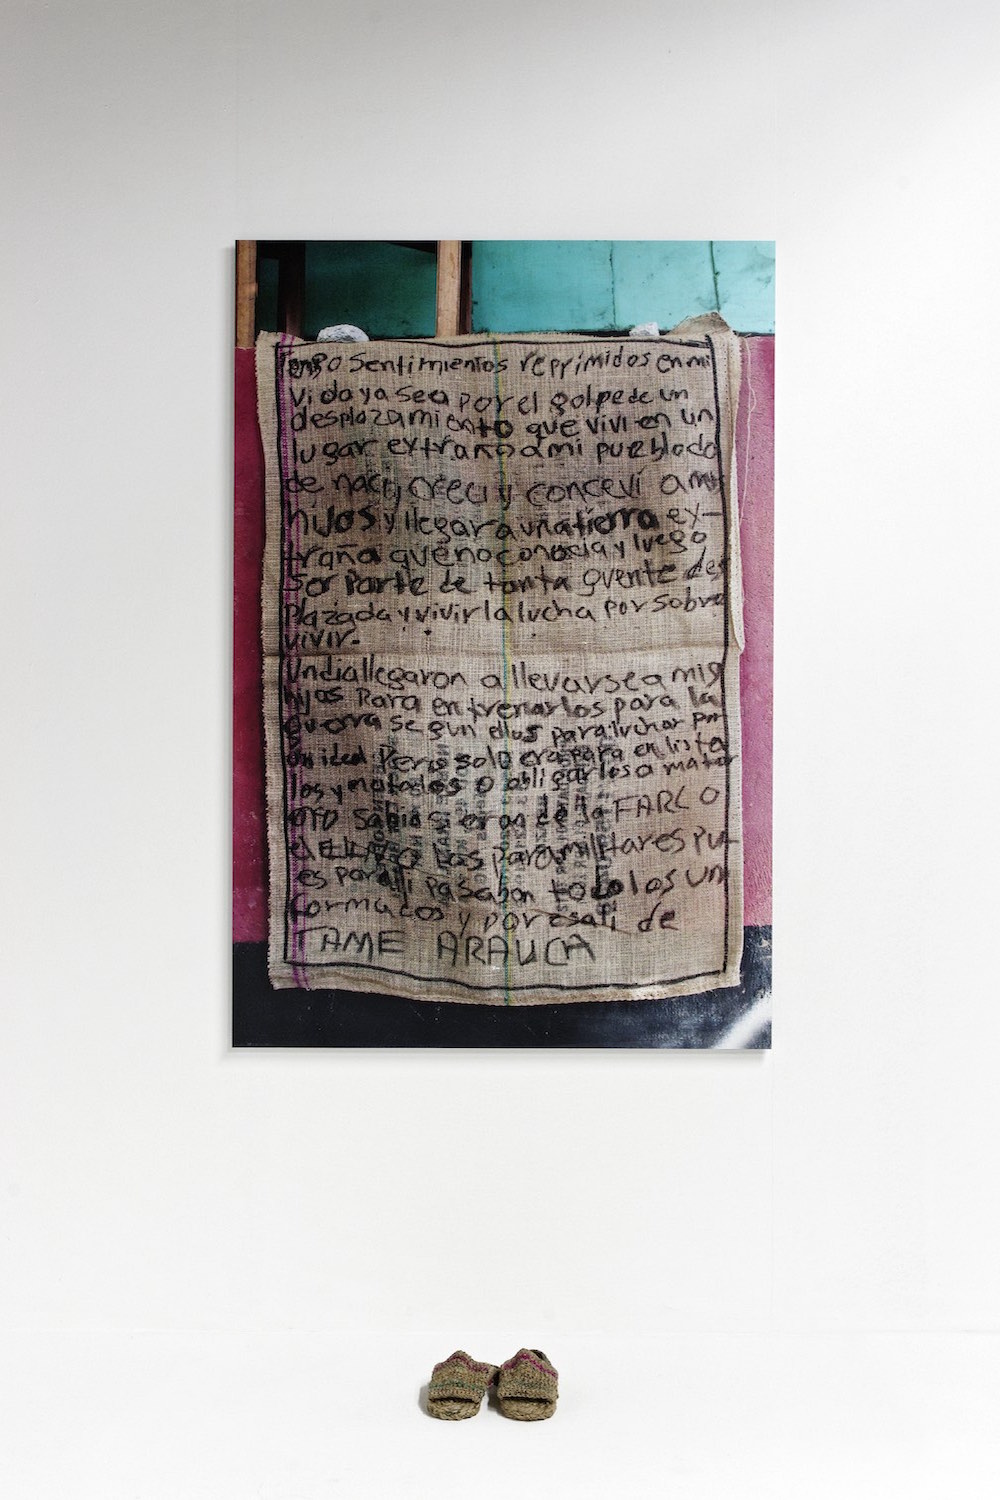 Tengo Sentimientos reprimidos en mi
vida ya sea por el golpe de un
desplazamiento que vivi en un
lugar extraño a mi pueblo do
de naci, creci y conceví a mi
hijos y llegar a una tierra ex-
traña que no conocia y luego
Ser parte de tanta guente des
plazada y vivir la lucha por sobre
vivir.
Un dia llegaron a llevarse a mis
hijos Para entrenarlos para la
guerra segun ellos para luchar por
un ideal Pero solo era para enlista
los y matarlos o obligarlos a matar
no sabia si eran de la FARC O
el ELN O Las paramilitares pu-
es por alli pasaban todos los un
formados y por esa ti de
TAME ARAUCA